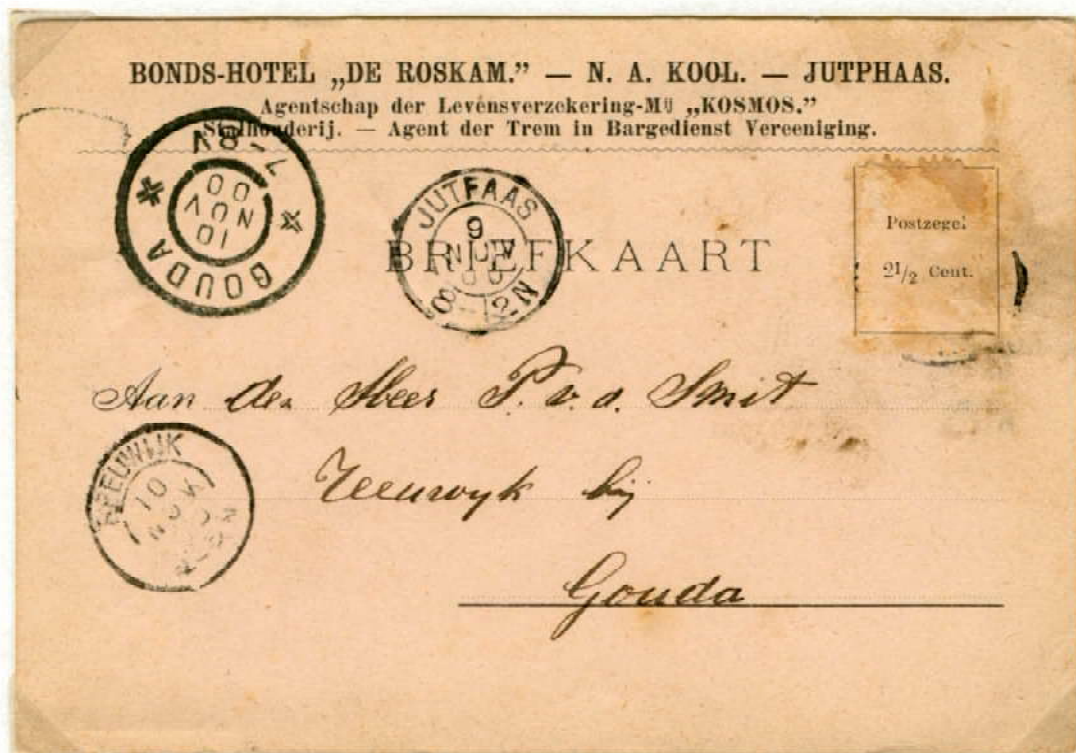 BONDS-HOTEL „DE ROSKAM.” — N. A. KOOL. — JUTPHAAS.
Agentschap der Levensverzekering-Mij „KOSMOS.”
Stalhouderij. — Agent der Trem in Bargedienst Vereeniging.
GOUDA
10
NOV
00
7-8V
JUTFAAS
9
NOV
00
8-12N
Postzegel
2½ Cent.
BRIEFKAART
Aan den Heer P. v. d. Smit
Reeuwyk bij
Gouda
REEUWIJK
10
NOV